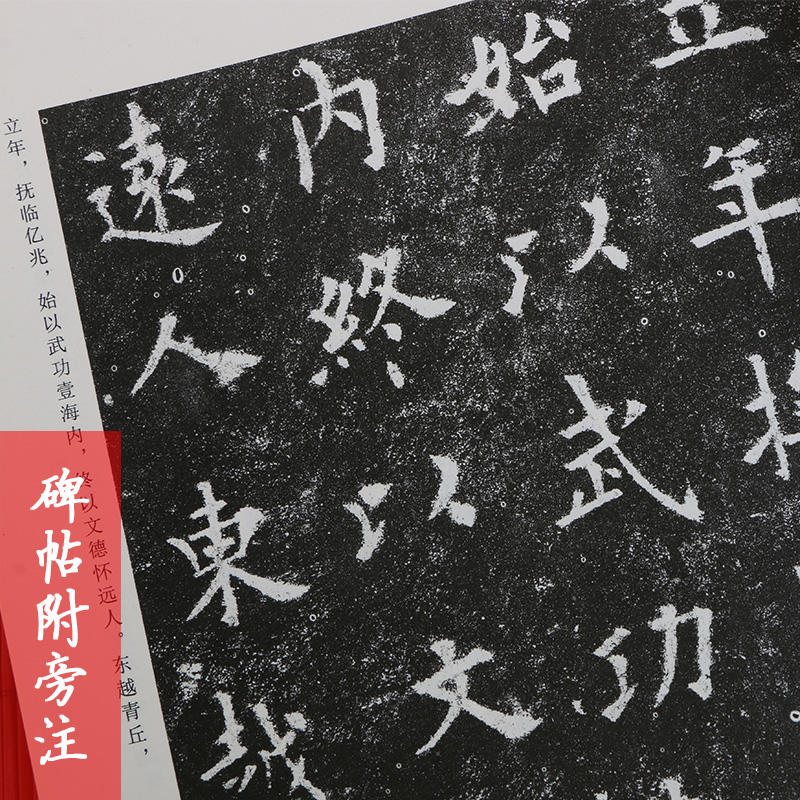 立年
始以武功
内終以文
遠人東越
立年，抚临亿兆，始以武功壹海内，终以文德怀远人。东越青丘，
碑帖附旁注